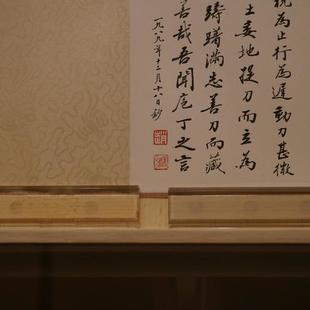 視為止行為遲動刀甚微
土委地提刀而立為
躊躇滿志善刀而藏
善哉吾聞庖丁之言
一九八九年十二月十八日鈔